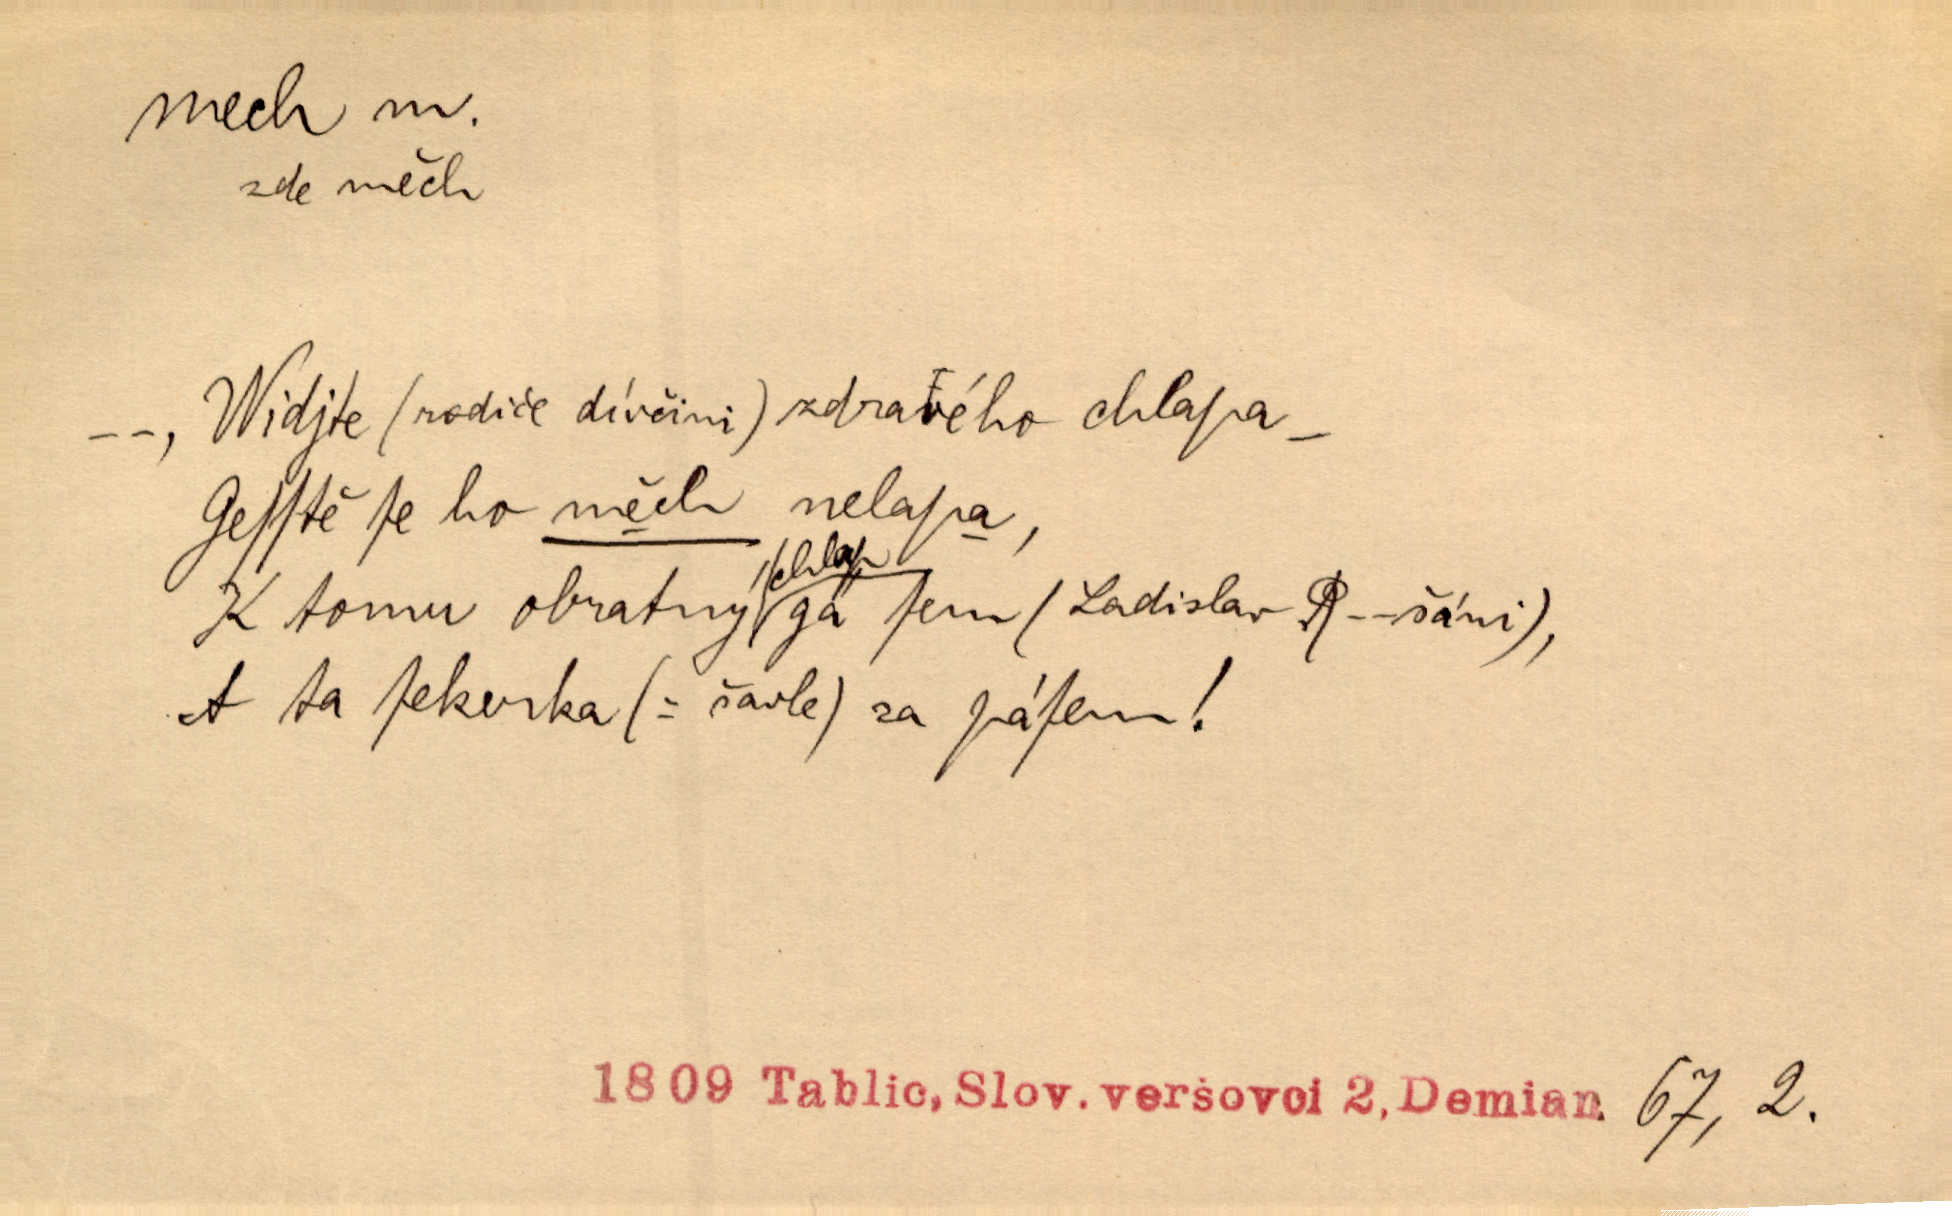 mech m.
zde měch
--, Widjte (rodiče dívčini) zdravého chlapa_
Geſſtě ſe ho měch nelapa,
chlap
K tomu obratný gá ſem (Ladislav R--šáni),
A ta ſekerka (= šavle) za páſem!
1809 Tablic, Slov. veršovci 2, Demian. 67, 2.